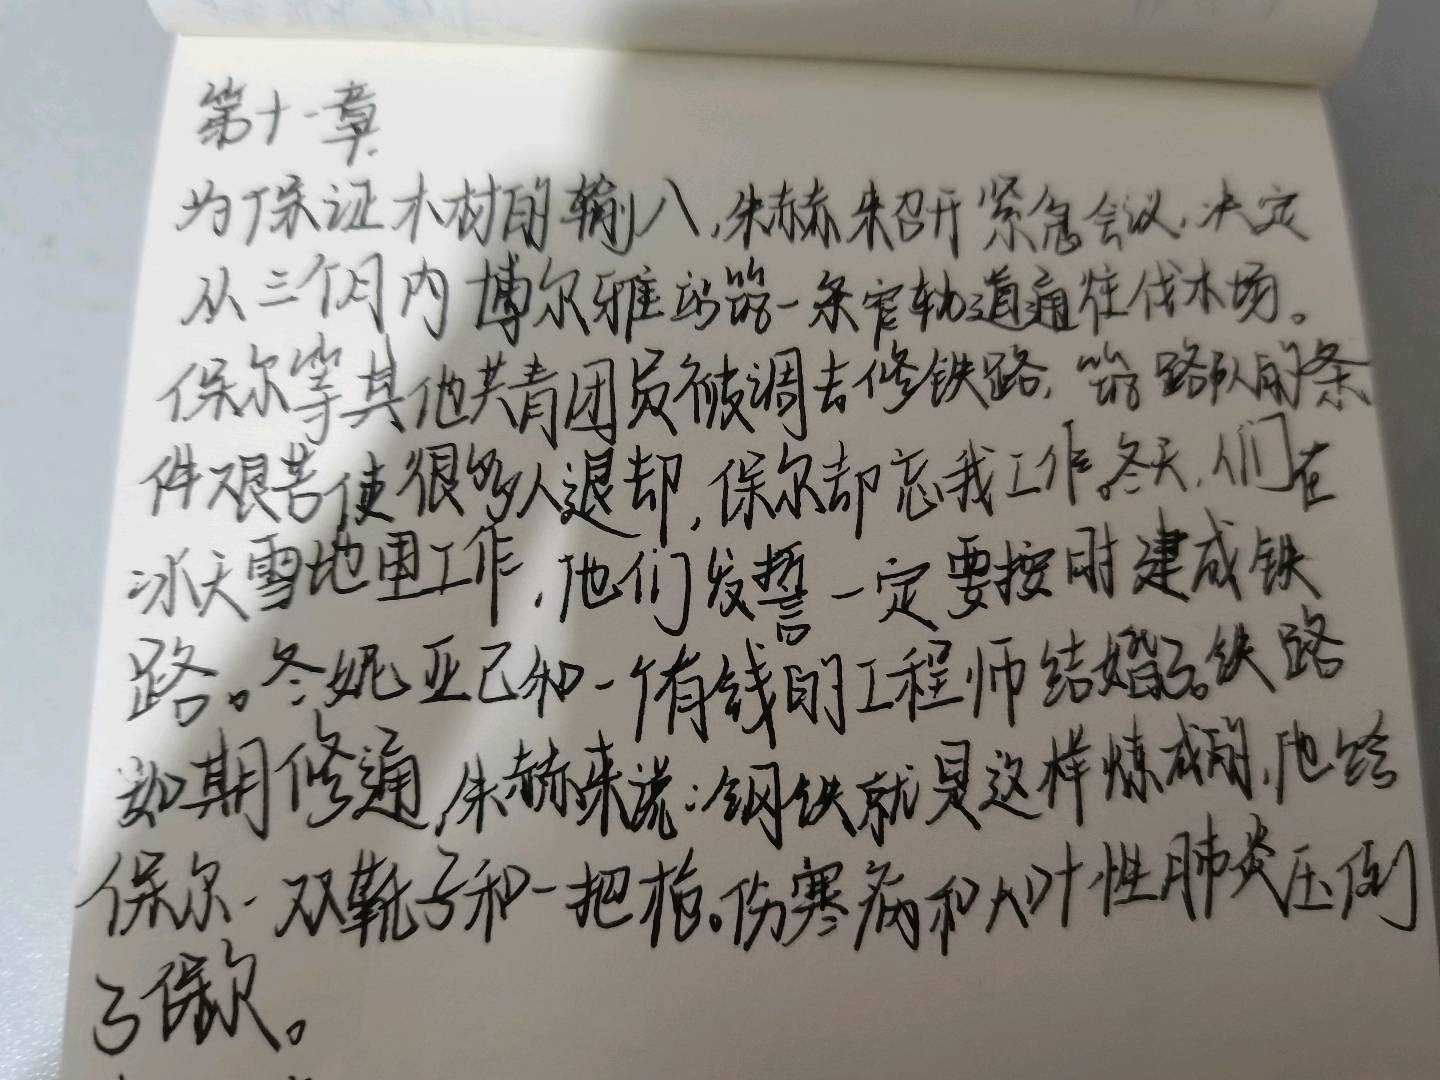 第十一章
为保证木材的输入,朱赫来召开紧急会议,决定
从三个月内博尔雅站筑一条窄轨道通往伐木场。
保尔等其他共青团员被调去修铁路,筑路队的条
件艰苦使很多人退却,保尔却忘我工作。冬天,人们在
冰天雪地里工作,他们发誓一定要按时建成铁
路。冬妮亚已和一个有钱的工程师结婚了。铁路
如期修通,朱赫来说:钢铁就是这样炼成的,他给
保尔一双靴子和一把枪。伤寒病和大叶性肺炎压倒
了保尔。